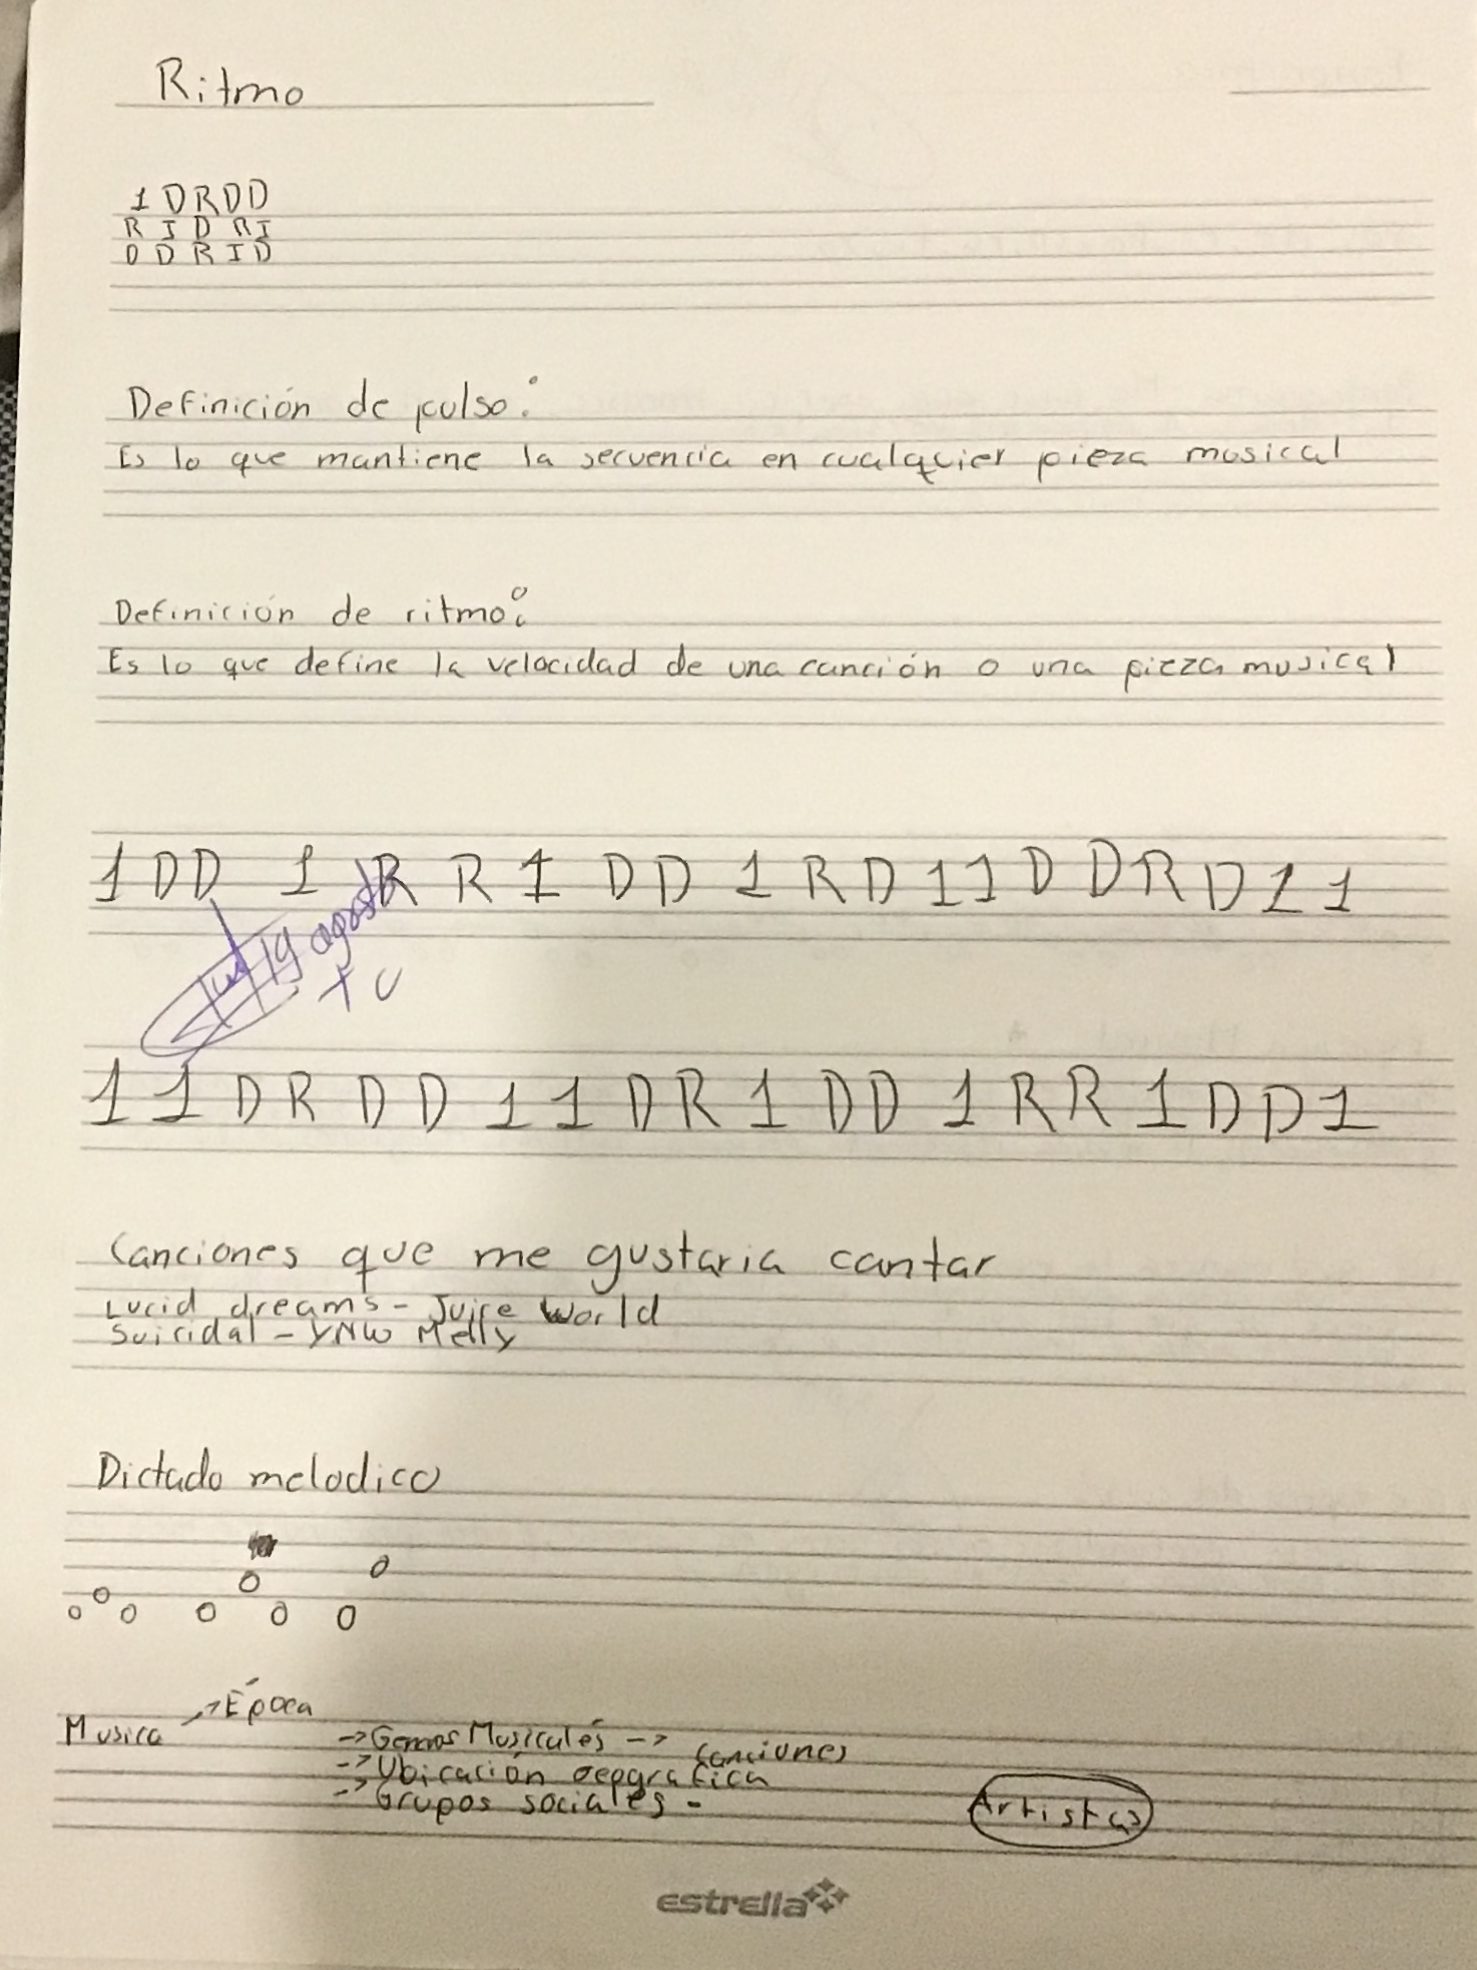 Ritmo
1 D R D D
R I D R I
D D R I D
Definición de pulso:
Es lo que mantiene la secuencia en cualquier pieza musical
Definición de ritmo:
Es lo que define la velocidad de una canción o una pieza musical
1 D D 1 R R 1 D D 1 R D 1 1 D D R D 1 1
19 agosto
1 1 D R D D 1 1 D R 1 D D 1 R R 1 D D 1
Canciones que me gustaria cantar
Lucid dreams - Juice World
Suicidal - YNW Melly
Dictado melodico
Musica → Época
→ Musicalés → Canciones
→ Ubicación geografica
→ Grupos sociales -
Artistas
estrella